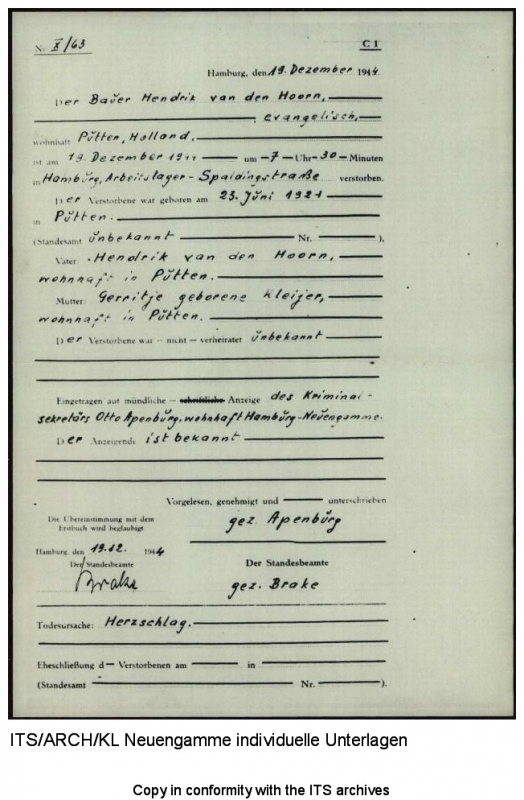 Nr. X/63 C 1
Hamburg, den 19. Dezember 1944
Der Bauer Hendrik van den Hoorn,
evangelisch,
wohnhaft Pütten, Holland,
ist am 19. Dezember 1944 um 7 Uhr 30 Minuten
in Hamburg, Arbeitslager - Spaldingstraße verstorben.
Der Verstorbene war geboren am 23. Juni 1921
in Pütten.
(Standesamt unbekannt Nr. ).
Vater: Hendrik van den Hoorn,
wohnhaft in Pütten.
Mutter: Gerritje geborene Kleijer,
wohnhaft in Pütten.
Der Verstorbene war – nicht – verheiratet unbekannt
Eingetragen auf mündliche – schriftliche Anzeige des Kriminal-
sekretärs Otto Apenburg, wohnhaft Hamburg-Neuengamme.
Der Anzeigende ist bekannt
Vorgelesen, genehmigt und unterschrieben
Die Übereinstimmung mit dem
Erstbuch wird beglaubigt
gez. Apenburg
Hamburg den 19.12. 1944
Der Standesbeamte Der Standesbeamte
Brake gez. Brake
Todesursache: Herzschlag.
Eheschließung d Verstorbenen am in
(Standesamt Nr. ).
ITS/ARCH/KL Neuengamme individuelle Unterlagen
Copy in conformity with the ITS archives